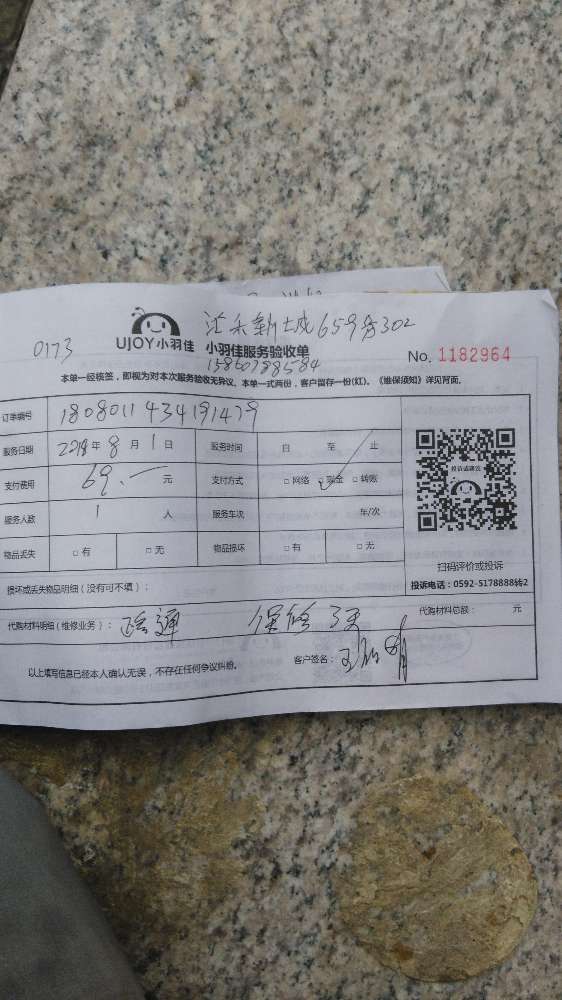 0173
UJOY小羽佳
659号302
小羽佳服务验收单
No. 1182964
本单一经核签，即视为对本次服务验收无异议。本单一式两份，客户留存一份(红)。《维保须知》详见背面。
订单编号
服务日期 2018年 8 月 1 日 服务时间 自 至 止
支付费用 69.一 元 支付方式 □ 网络 □ 现金 □ 转账
服务人数 1 人 服务车次 车/次
物品丢失 □ 有 □ 无 物品损坏 □ 有 □ 无
投诉或建议
扫码评价或投诉
投诉电话：0592-5178888转2
损坏或丢失物品明细（没有可不填）：
代购材料明细（维修业务）： 疏通 保修 3天 代购材料总额： 元
以上填写信息已经本人确认无误，不存在任何争议纠纷。 客户签名：